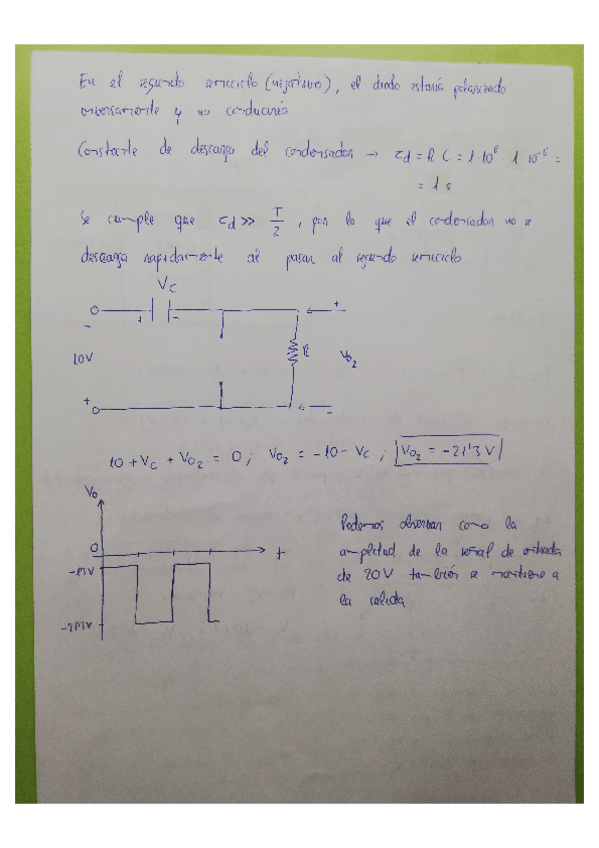 En el segundo semiciclo (negativo), el diodo estaría polarizado
inversamente y no conduciría
Constante de descarga del condensador → τd = R C = 1 10⁶ · 1 10⁻⁶ =
= 1 s
Se cumple que τd >> T/2, por lo que el condensador no se
descarga rapidamente al pasar al segundo semiciclo
Vc
+ -
- +
10V R Vo₂
+ -
10 + Vc + Vo₂ = 0 ; Vo₂ = -10 - Vc ; Vo₂ = -21'3 V
Vo
0 t
-1'3V
-21'3V
Podemos observar como la
amplitud de la señal de entrada
de 20V también se mantiene a
la salida